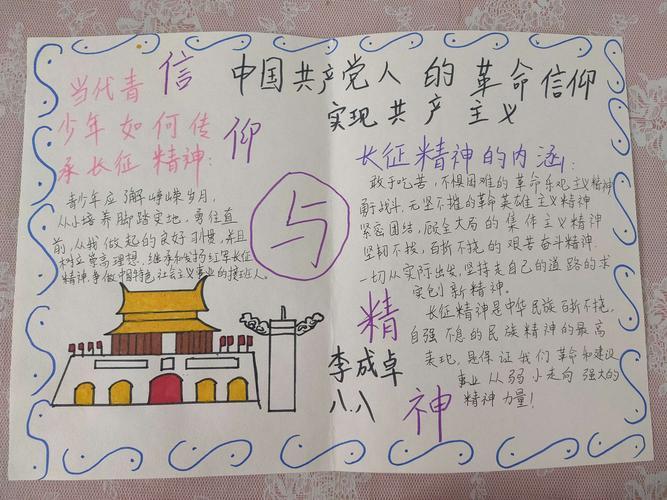 信
仰
与
精
神
当代青
少年如何传
承长征精神:
青少年应了解峥嵘岁月,
从小培养脚踏实地,勇往直
前,从我做起的良好习惯,并且
树立崇高理想,继承和发扬红军长征
精神,争做中国特色社会主义事业的接班人。
中国共产党人的革命信仰
实现共产主义
长征精神的内涵:
敢于吃苦,不惧困难的革命乐观主义精神
勇于战斗,无坚不摧的革命英雄主义精神
紧密团结,顾全大局的集体主义精神
坚韧不拔,百折不挠的艰苦奋斗精神.
一切从实际出发,坚持走自己的道路的求
实创新精神。
长征精神是中华民族百折不挠,
自强不息的民族精神的最高
表现,是保证我们革命和建设
事业从弱小走向强大的
精神力量!
李成卓
八.八